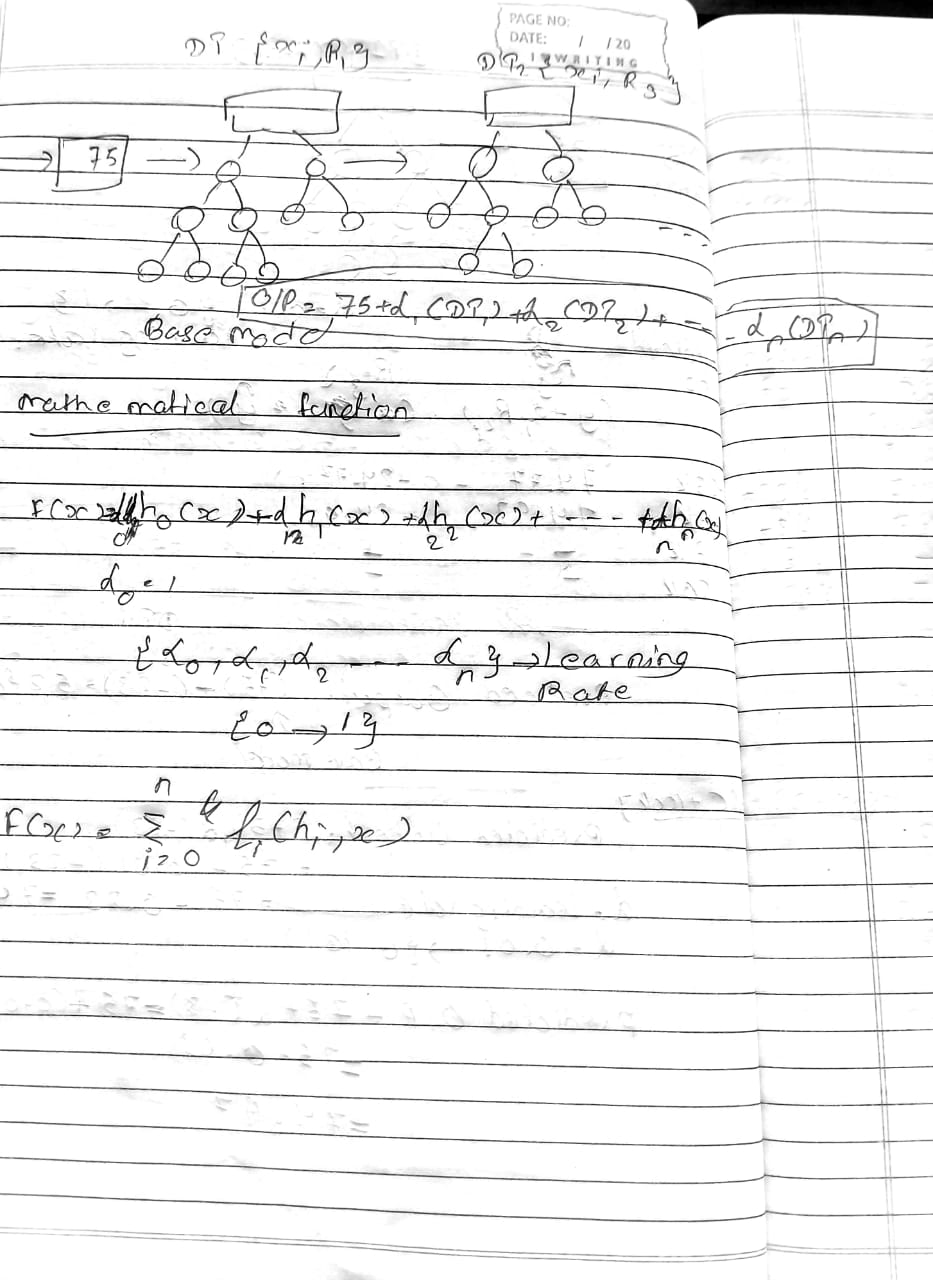 PAGE NO:
DATE: / /20
DT {xi, R1}
DT2 { xi, R3}
75
O/P = 75+α1(DT1)+α2(DT2)+ --- αn(DTn)
Base model
mathematical function
F(x) = α0h0(x)+α1h1(x)+α2h2(x)+ ---- +αnhn(x)
α0 = 1
{α0, α1, α2 ---- αn} → Learning
Rate
{0 → 1}
n
F(x) = Σ αi(hi, x)
i=0